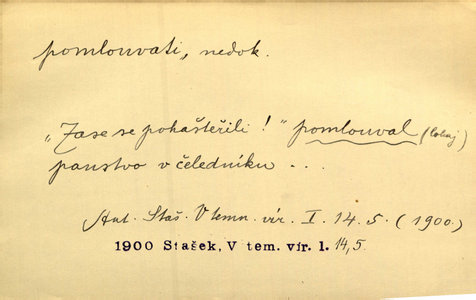 pomlouvati, nedok.
„Zase se pohaštěřili!" pomlouval (lokaj)
panstvo v čeledníku ...
Ant. Staš. V temn. vír. I. 14. 5. (1900.)
1900 Stašek, V tem. vír. 1. 14,5.